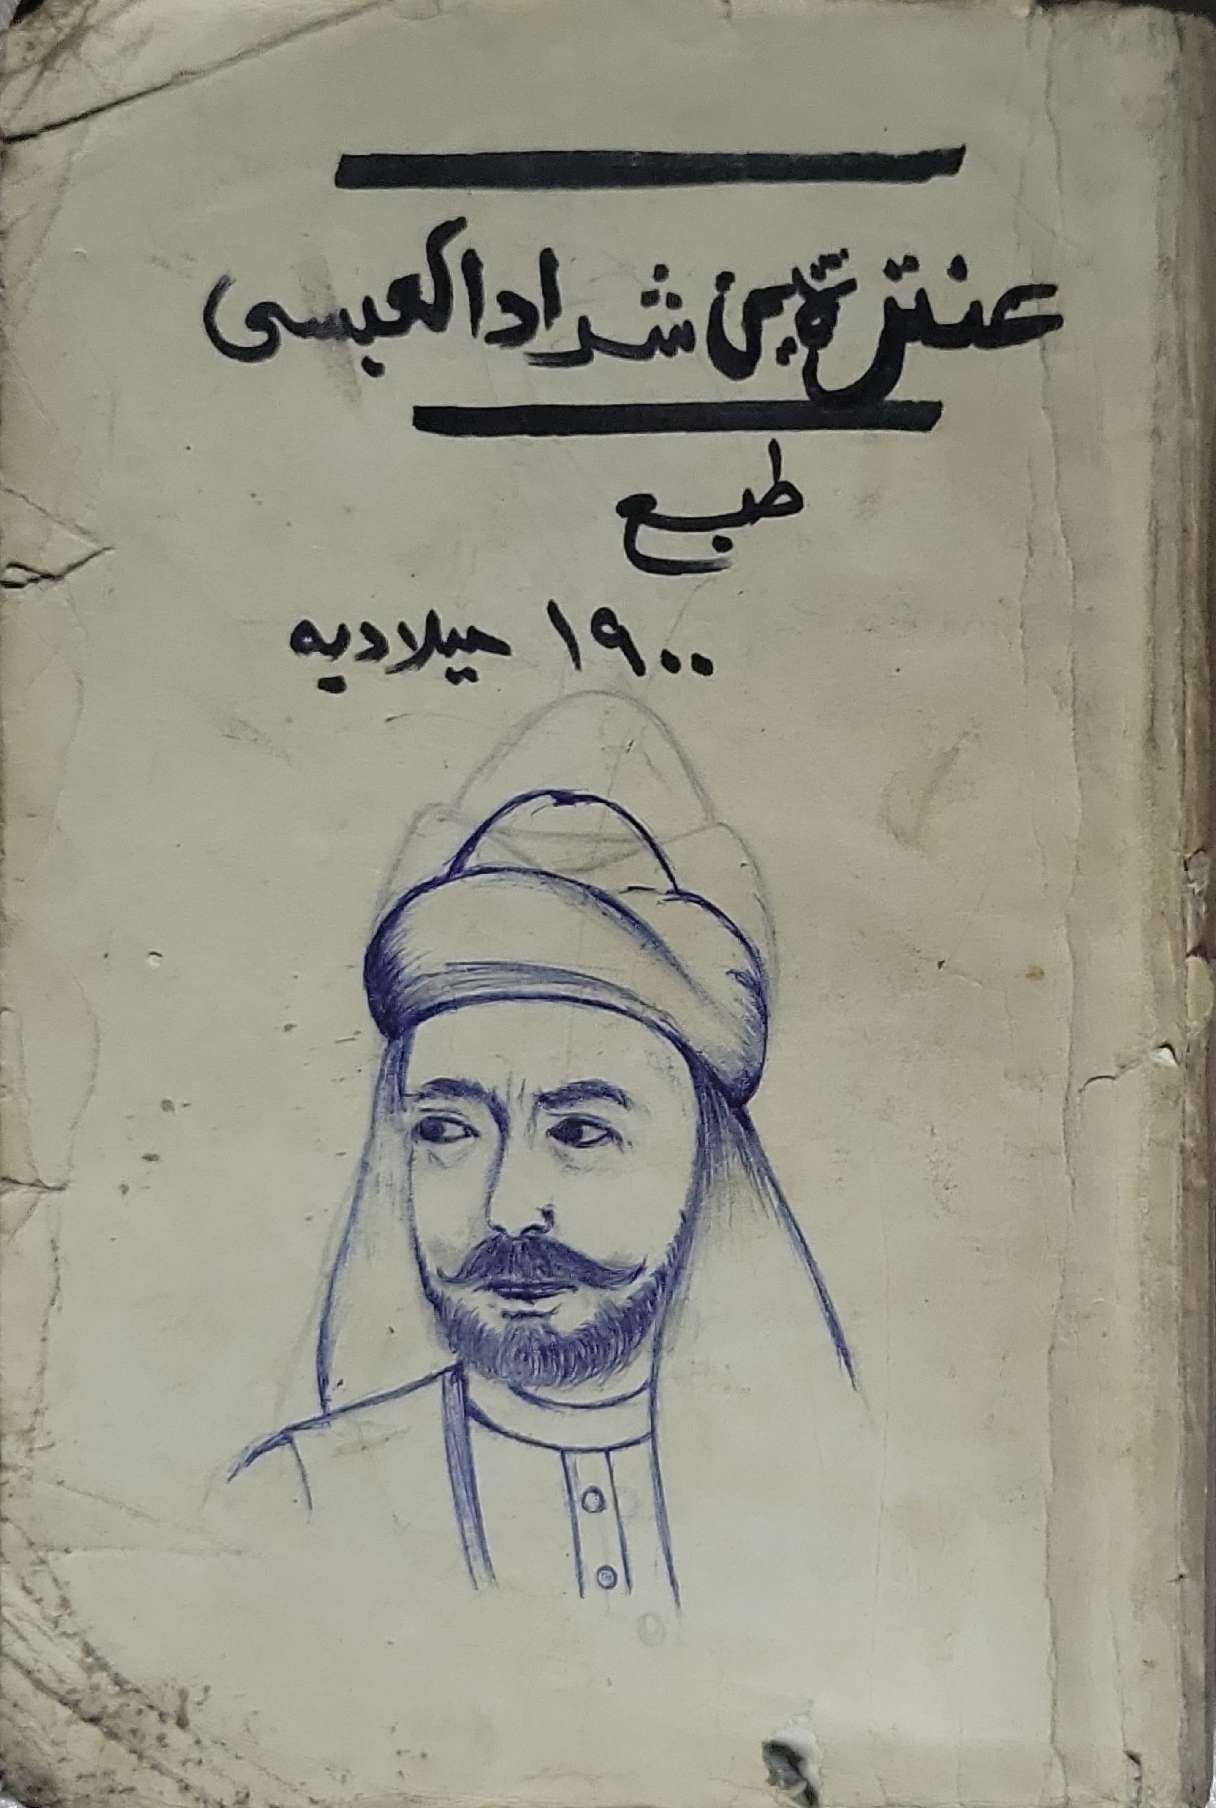 عنترة بن شداد العبسى
طبع
١٩٠٠ ميلاديه